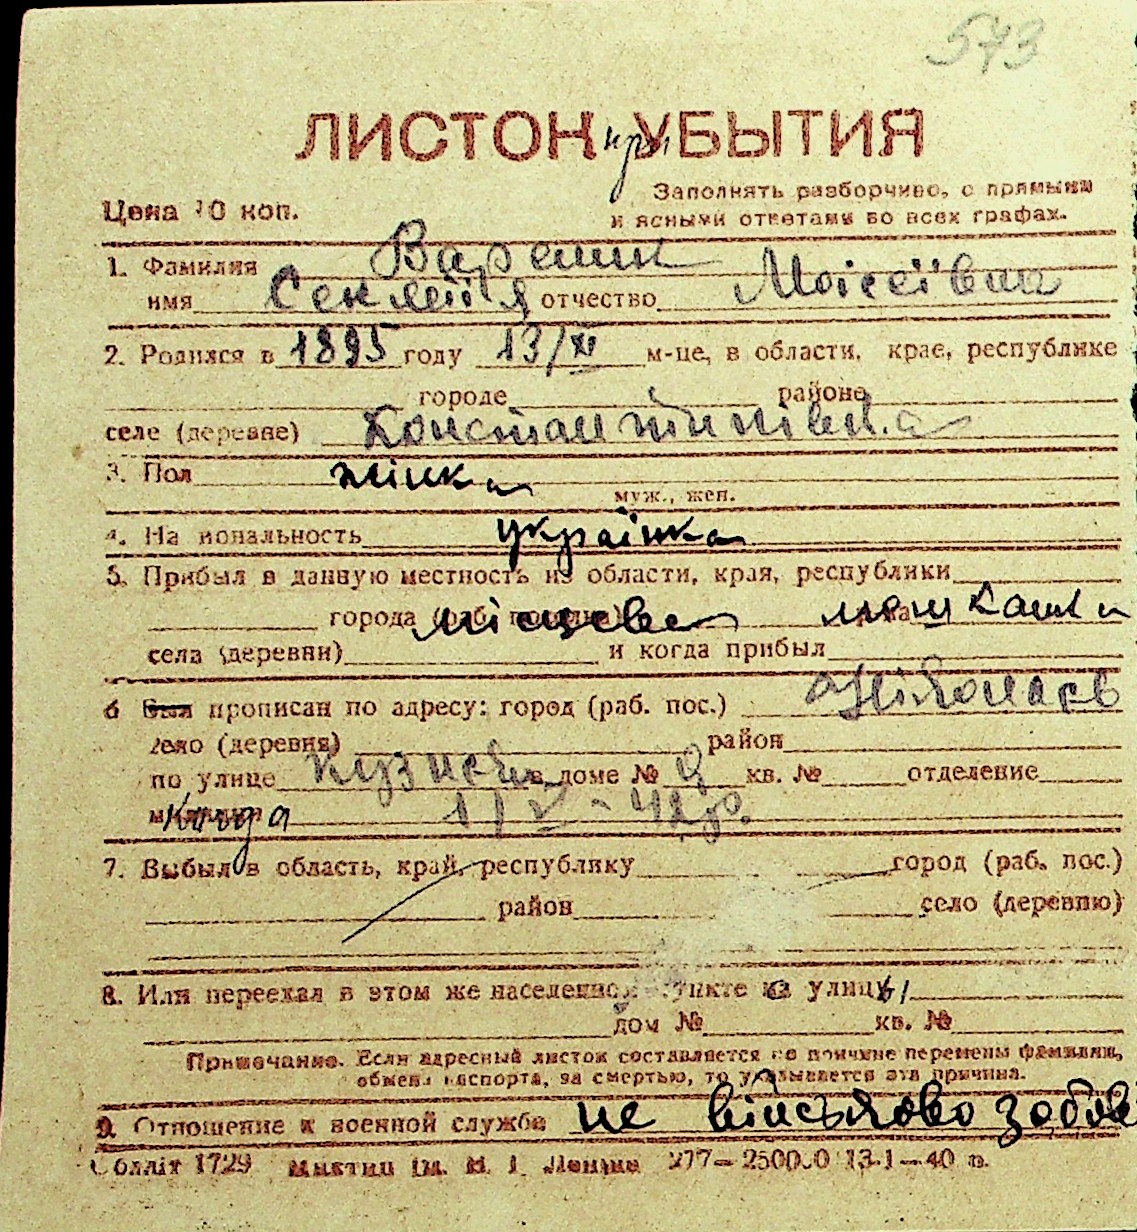 573
ЛИСТОК при УБЫТИЯ
Цена 10 коп.
Заполнять разборчиво, с прямыми
и ясными ответами во всех графах.
1. Фамилия Вареник
имя Секлетія отчество Моісеївна
2. Родился в 1895 году 13/XI м-це, в области, крае, республике
городе районе
селе (деревне) Константинівка
3. Пол жінка
муж., жен.
4. Национальность українка
5. Прибыл в данную местность из области, края, республики
города (раб. поселка) місцева мешканка
села (деревни) и когда прибыл
6 Был прописан по адресу: город (раб. пос.) Ніколаєв
село (деревня) район
по улице в доме № 9 кв. № отделение
милиции Когда 1/V-42р.
7. Выбыл в область, край, республику город (раб. пос.)
район село (деревню)
8. Или переехал в этом же населенном пункте с улицы
дом № кв. №
Примечание. Если адресный листок составляется по причине перемены фамилии,
обмена паспорта, за смертью, то указывается эта причина.
9. Отношение к военной службе не військово зобов
Облліт 1729 Миктип Ім. Леніна 277—250000 13-1—40 р.